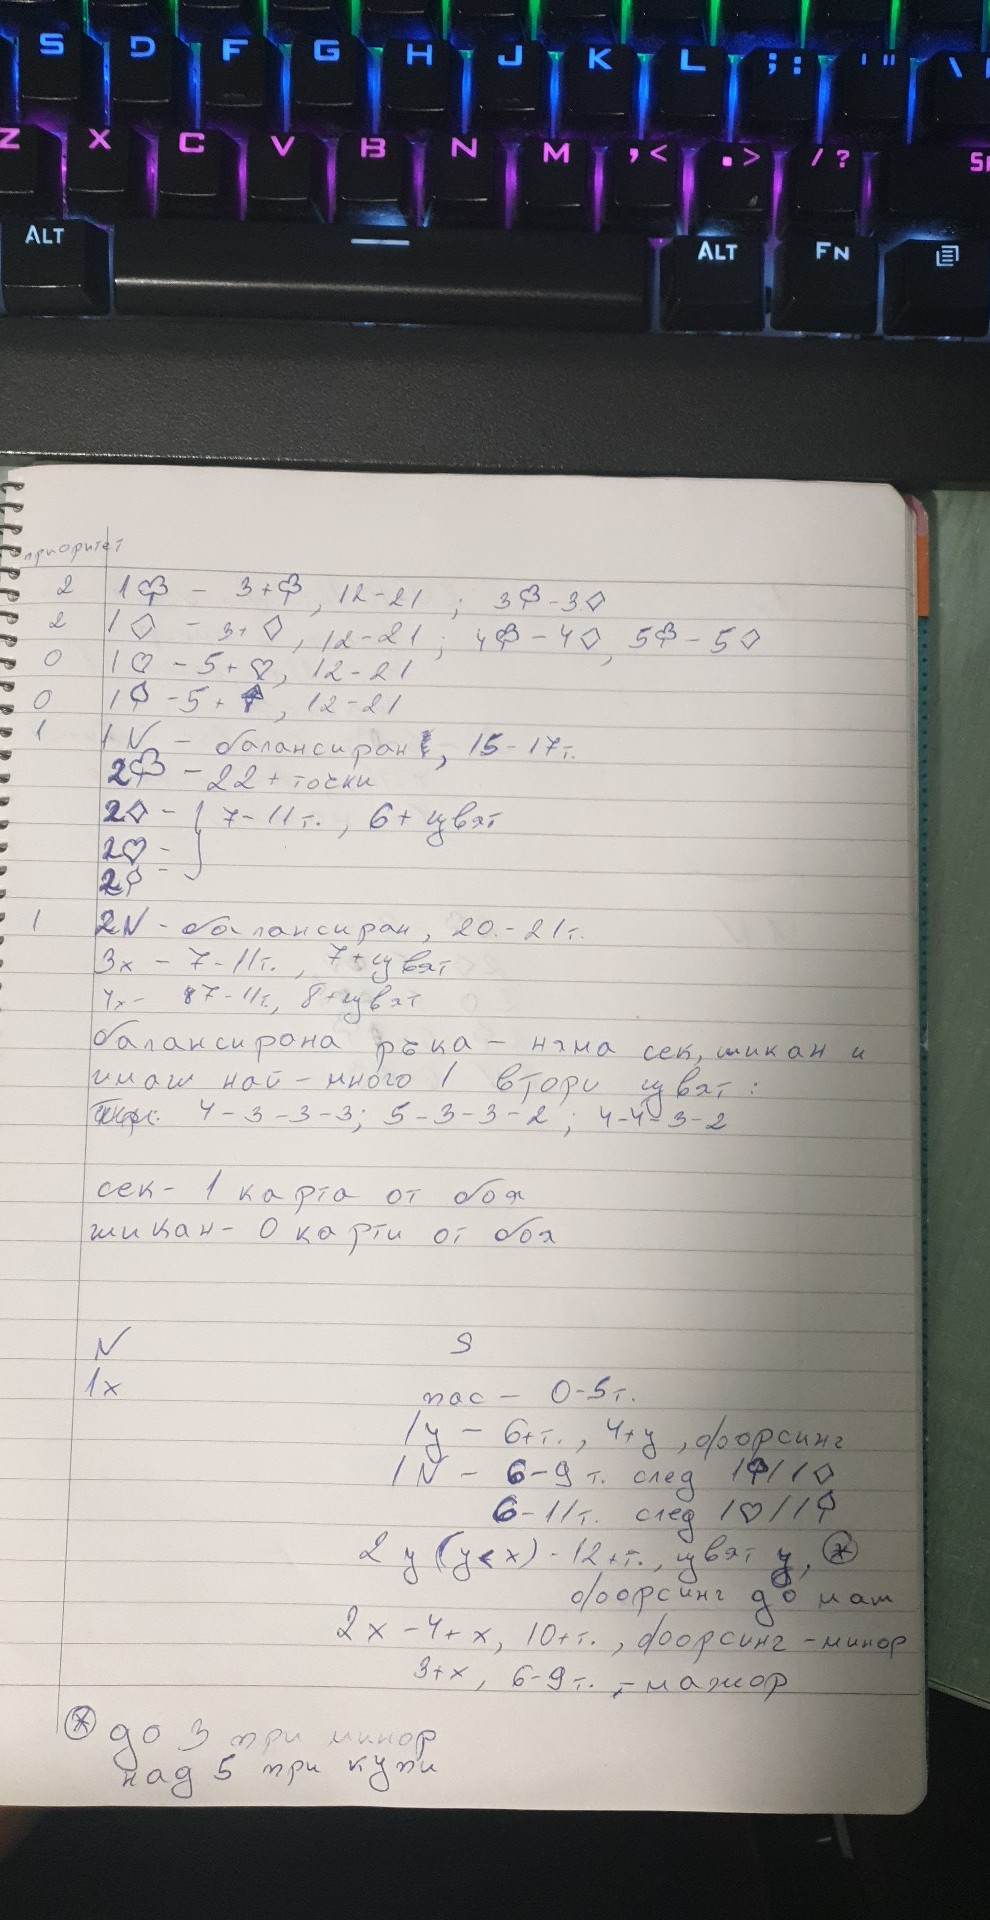 S D F G H J K L ; : ' " \
Z X C V B N M , < . > / ?
ALT ALT FN
приоритет
2 1♣ - 3+♣, 12-21 ; 3♣-3♢
2 1♢ - 3+♢, 12-21 ; 4♣-4♢, 5♣-5♢
0 1♡ - 5+♡, 12-21
0 1♠ - 5+♠, 12-21
1 1N - балансиран, 15-17т.
2♣ - 22+ точки
2♢ - } 7-11т., 6+ цвят
2♡ -
2♠ -
1 2N - балансиран, 20-21т.
3x - 7-11т., 7+цвят
4x - 7-11т, 8+цвят
балансирана ръка - няма сек, шикан и
имаш най-много 1 втори цвят:
4-3-3-3; 5-3-3-2; 4-4-3-2
сек- 1 карта от боя
шикан- 0 карти от боя
N S
1x пас - 0-5т.
1y - 6+т., 4+y, форсинг
1N - 6-9т. след 1♣/1♢
6-11т. след 1♡/1♠
2y (y<x) - 12+т., цвят y, *
форсинг до маш
2x - 4+x, 10+т., форсинг - минор
3+x, 6-9т. - мажор
* до 3 при минор
над 5 при купи